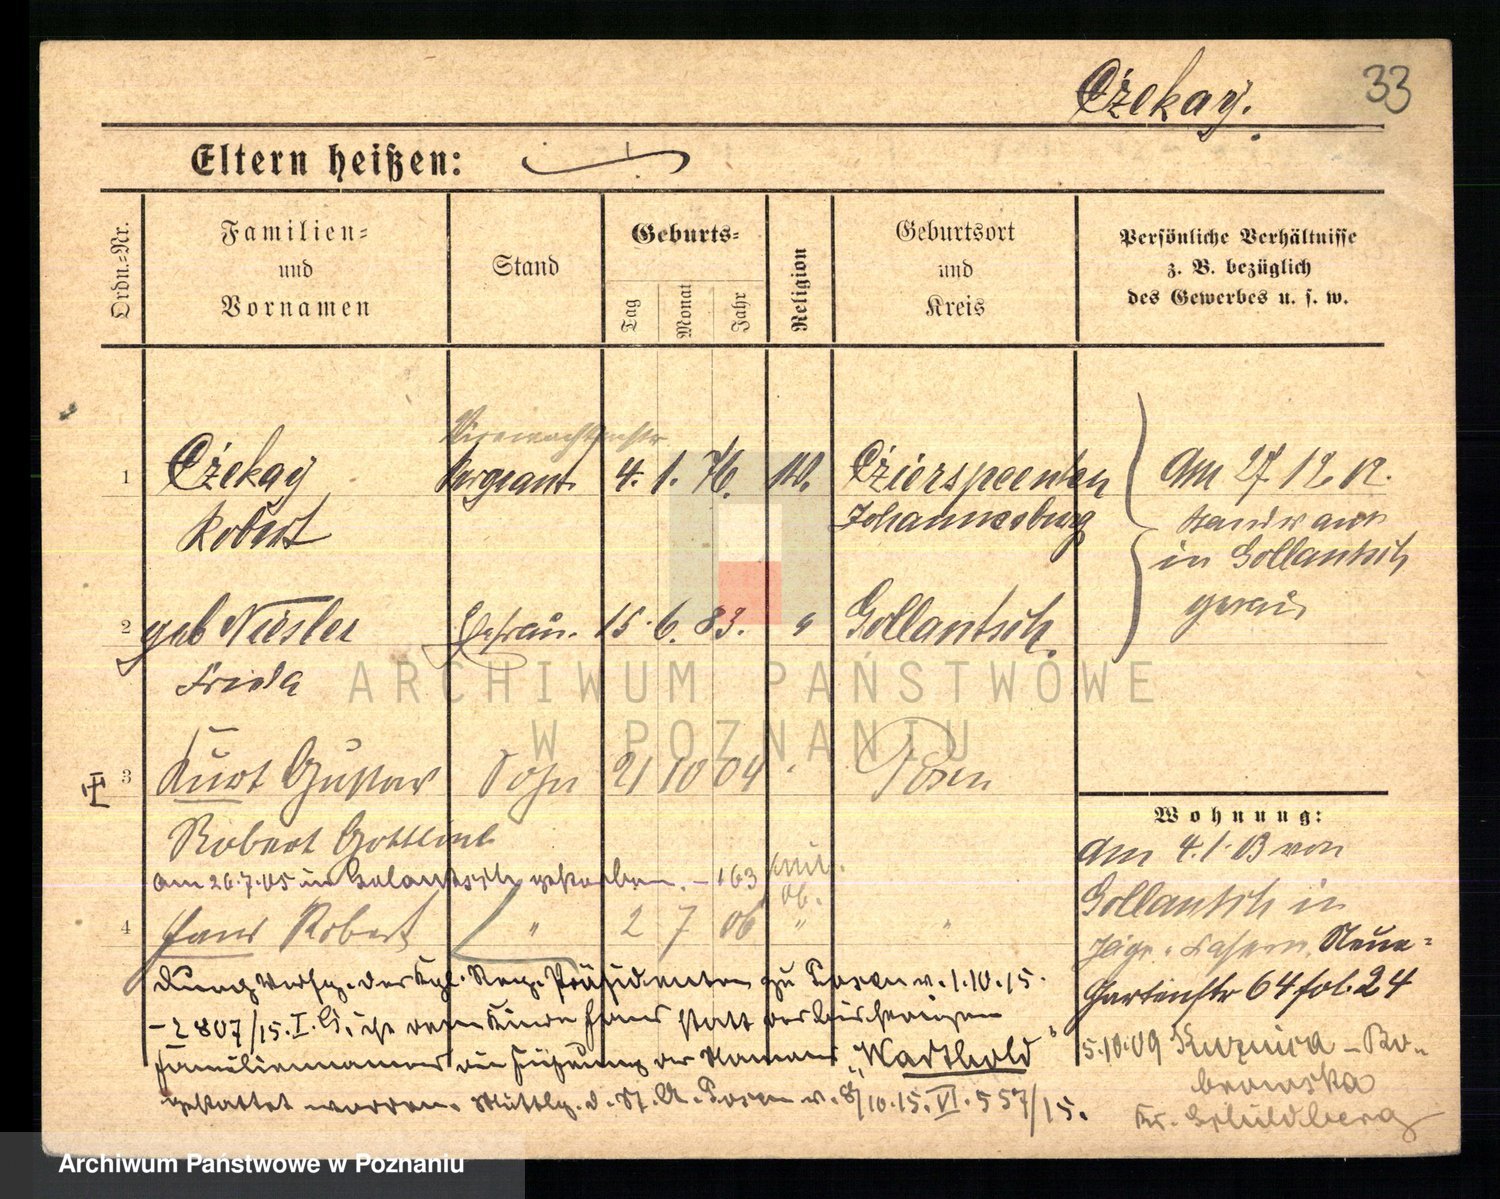 Czekay.
33
Eltern heißen:
Ordn.-Nr.
Familien-
und
Vornamen
Stand
Geburts-
Tag
Monat
Jahr
Religion
Geburtsort
und
Kreis
Persönliche Verhältnisse
z. B. bezüglich
des Gewerbes u. s. w.
1
Czekay
Sergeant
4. 1. 76.
Czierspeenten
Robert
Johannesburg
Am 27. 12. 02.
in Gollantsch
2
geb Niesler
Ehefrau.
15. 6. 83.
Gollantsch.
Frieda
3
Kurt Gustav
Sohn
21 10 04
Posen
Robert Gottlieb
am 26.7.05 in Golantsch gestorben. – 163
4
Hans Robert
"
2 7 06
"
"
Wohnung:
Am 4.1.03 von
Gollantsch in
Jäger-Kasern. Neue-
Gartenstr 64 fol. 24
5.10.09 Kuznica - Bo-
browska
Kr. Schildberg
Durch Verfg. des Kgl. Reg. Präsidenten zu Posen v. 1.10.15.
– 2807/15. I. G. ist dem Kinde Hans statt des bisherigen
Familiennamens die Führung des Namens "Warthold"
gestattet worden. Mittlg. d. St. A. Posen v. 8/10.15. VI. 557/15.
ARCHIWUM PAŃSTWOWE
W POZNANIU
Archiwum Państwowe w Poznaniu